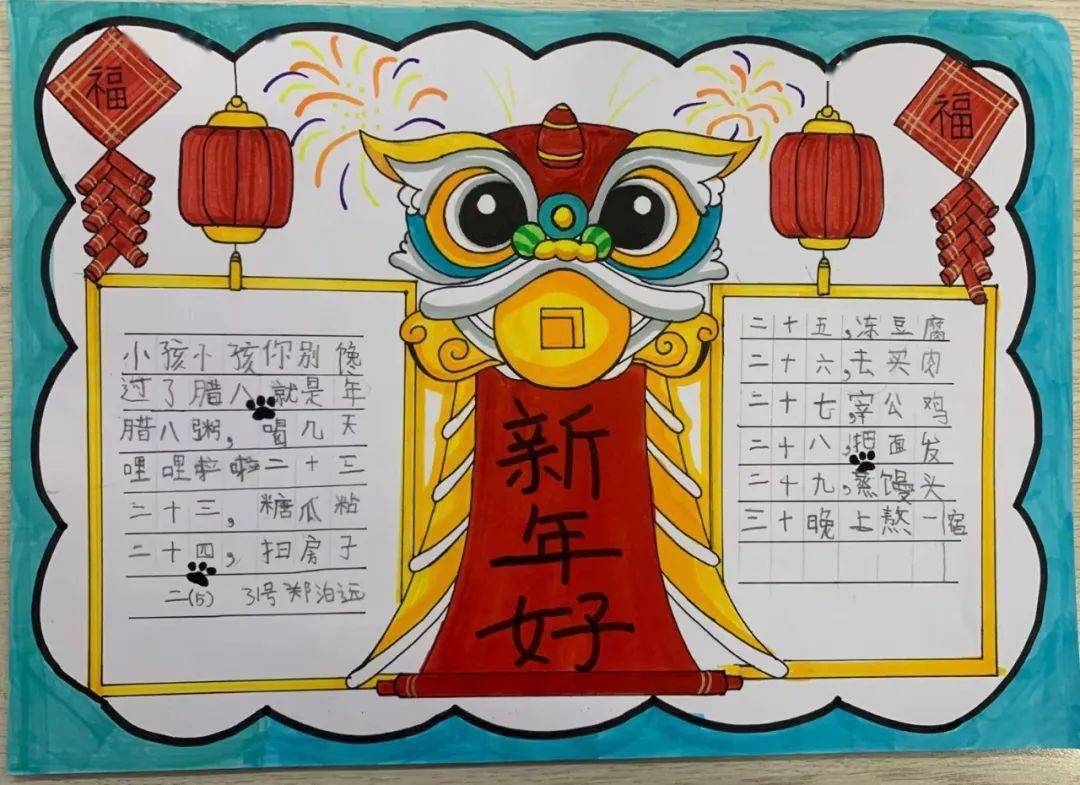 福
福
小孩小孩你别馋
过了腊八,就是年
腊八粥,喝几天
哩哩啦啦二十三
二十三,糖瓜粘
二十四,扫房子
二(5) 31号郑泊远
新年好
二十五,冻豆腐
二十六,去买肉
二十七,宰公鸡
二十八,把面发
二十九,蒸馒头
三十晚上熬一宿